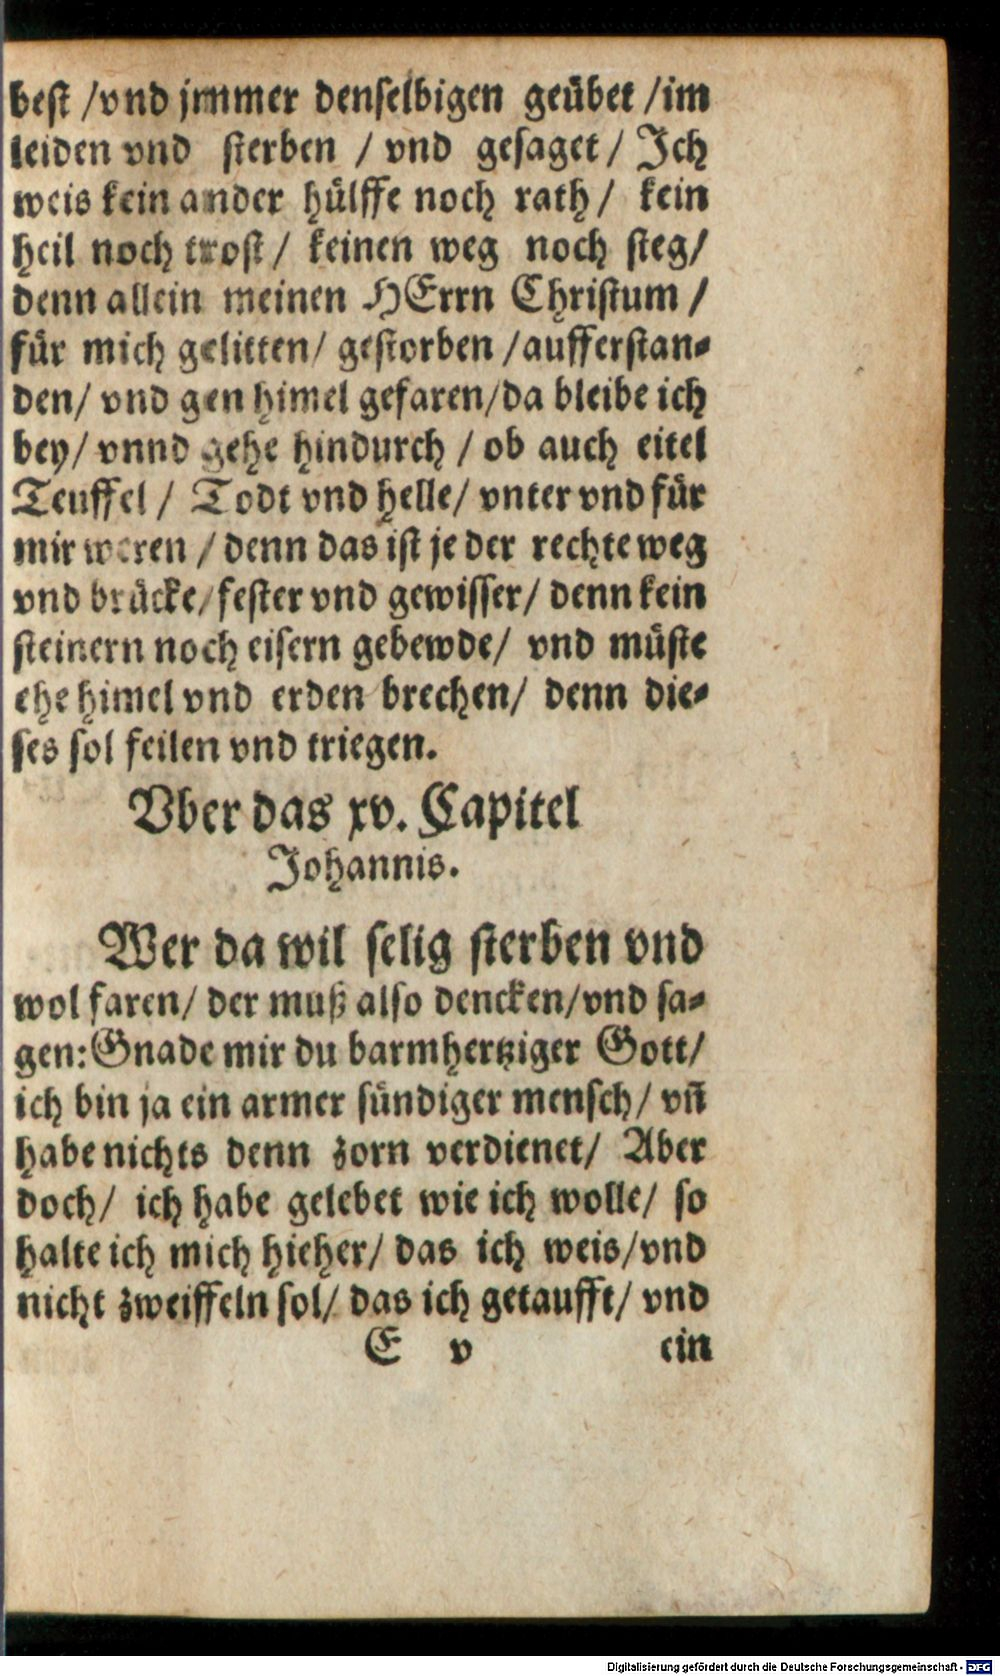 best /vnd jmmer denselbigen geübet /im
leiden vnd sterben / vnd gesaget / Ich
weis kein ander hülffe noch rath / kein
heil noch trost / keinen weg noch steg/
denn allein meinen HErrn Christum /
für mich gelitten/ gestorben /aufferstan-
den/ vnd gen himel gefaren/da bleibe ich
bey/ vnnd gehe hindurch / ob auch eitel
Teuffel / Todt vnd helle/ vnter vnd für
mir weren / denn das ist je der rechte weg
vnd brücke/ fester vnd gewisser/ denn kein
steinern noch eisern gebewde/ vnd müste
ehe himel vnd erden brechen/ denn die-
ses sol feilen vnd triegen.
Vber das xv. Capitel
Johannis.
Wer da wil selig sterben vnd
wol faren/ der muß also dencken/vnd sa-
gen: Gnade mir du barmhertziger Gott/
ich bin ja ein armer sündiger mensch/ vñ
habe nichts denn zorn verdienet/ Aber
doch/ ich habe gelebet wie ich wolle/ so
halte ich mich hieher/ das ich weis/vnd
nicht zweiffeln sol/ das ich getaufft/ vnd
E v ein
Digitalisierung gefördert durch die Deutsche Forschungsgemeinschaft - DFG